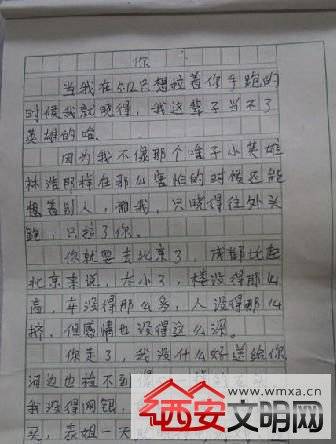 你
当我在512只想拉着你手跑的
时候我就晓得，我这辈子当不了
英雄的啥
因为我不像那个啥子小英雄
林浩那样在那么害怕的时候还能
想着别人，而我，只晓得往外头
跑，只拉了你。
你就要去北京了，成都比起
北京来说，太小了，楼没得那么
高，车没得那么多，人没得那么
挤，但感情也没得这么深。
你走了，我没什么好送给你
河边也捡不到像
我没得网银，
买，表姐一天
西安文明网
www.wmxa.cn